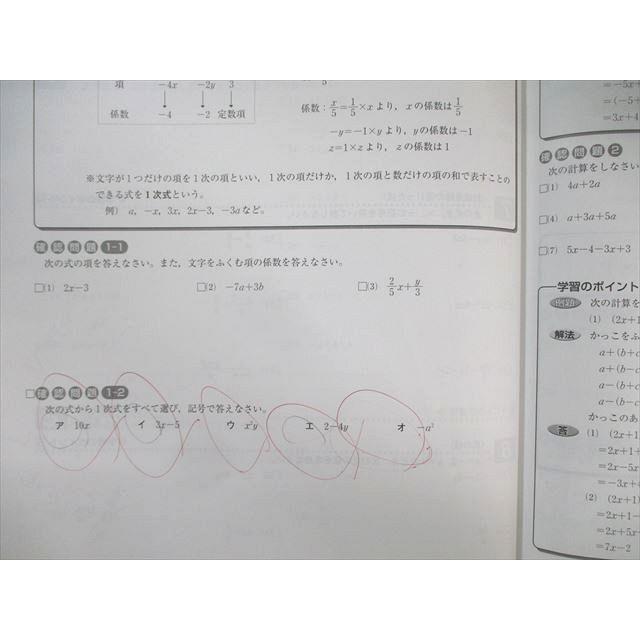 項 −4x −2y 3
係数 −4 −2 定数項
係数：x/5=1/5×x より，x の係数は1/5
−y=−1×y より，y の係数は−1
z=1×z より，z の係数は1
※文字が1つだけの項を1次の項といい，1次の項だけか，1次の項と数だけの項の和で表すことの
できる式を1次式という。
例） a, −x, 3x, 2x−3, −3a など。
確認問題 1-1
次の式の項を答えなさい。また，文字をふくむ項の係数を答えなさい。
□(1) 2x−3 □(2) −7a+3b □(3) 2/5x+y/3
□確認問題 1-2
次の式から1次式をすべて選び，記号で答えなさい。
ア 10x イ 3x−5 ウ x²y エ 2−4y オ −a²
=(−5+
=3x+4
確認問題 2
次の計算をしなさい
□(1) 4a+2a
□(4) a+3a+5a
□(7) 5x−4−3x+3
学習のポイント
例題 次の計算を
(1) (2x+1
解法 かっこをふ
a+(b+c
a+(b−c
a−(b+c
a−(b−c
かっこのあ
答 (1) (2x+1)
=2x+1+
=2x−5x
=−3x+
(2) (2x+1)
=2x+1−
=2x+5x
=7x−2